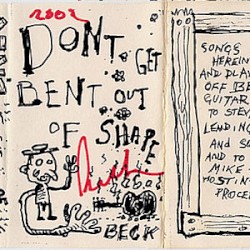 2002
DON'T GET
BENT OUT
OF SHAPE
BECK
SONGS
HEREIN
AND PLA
OFF BE
GUITAR
TO STEV
LENDIN
AND SO
AND TO
MIKE
HOSTIN
PROG